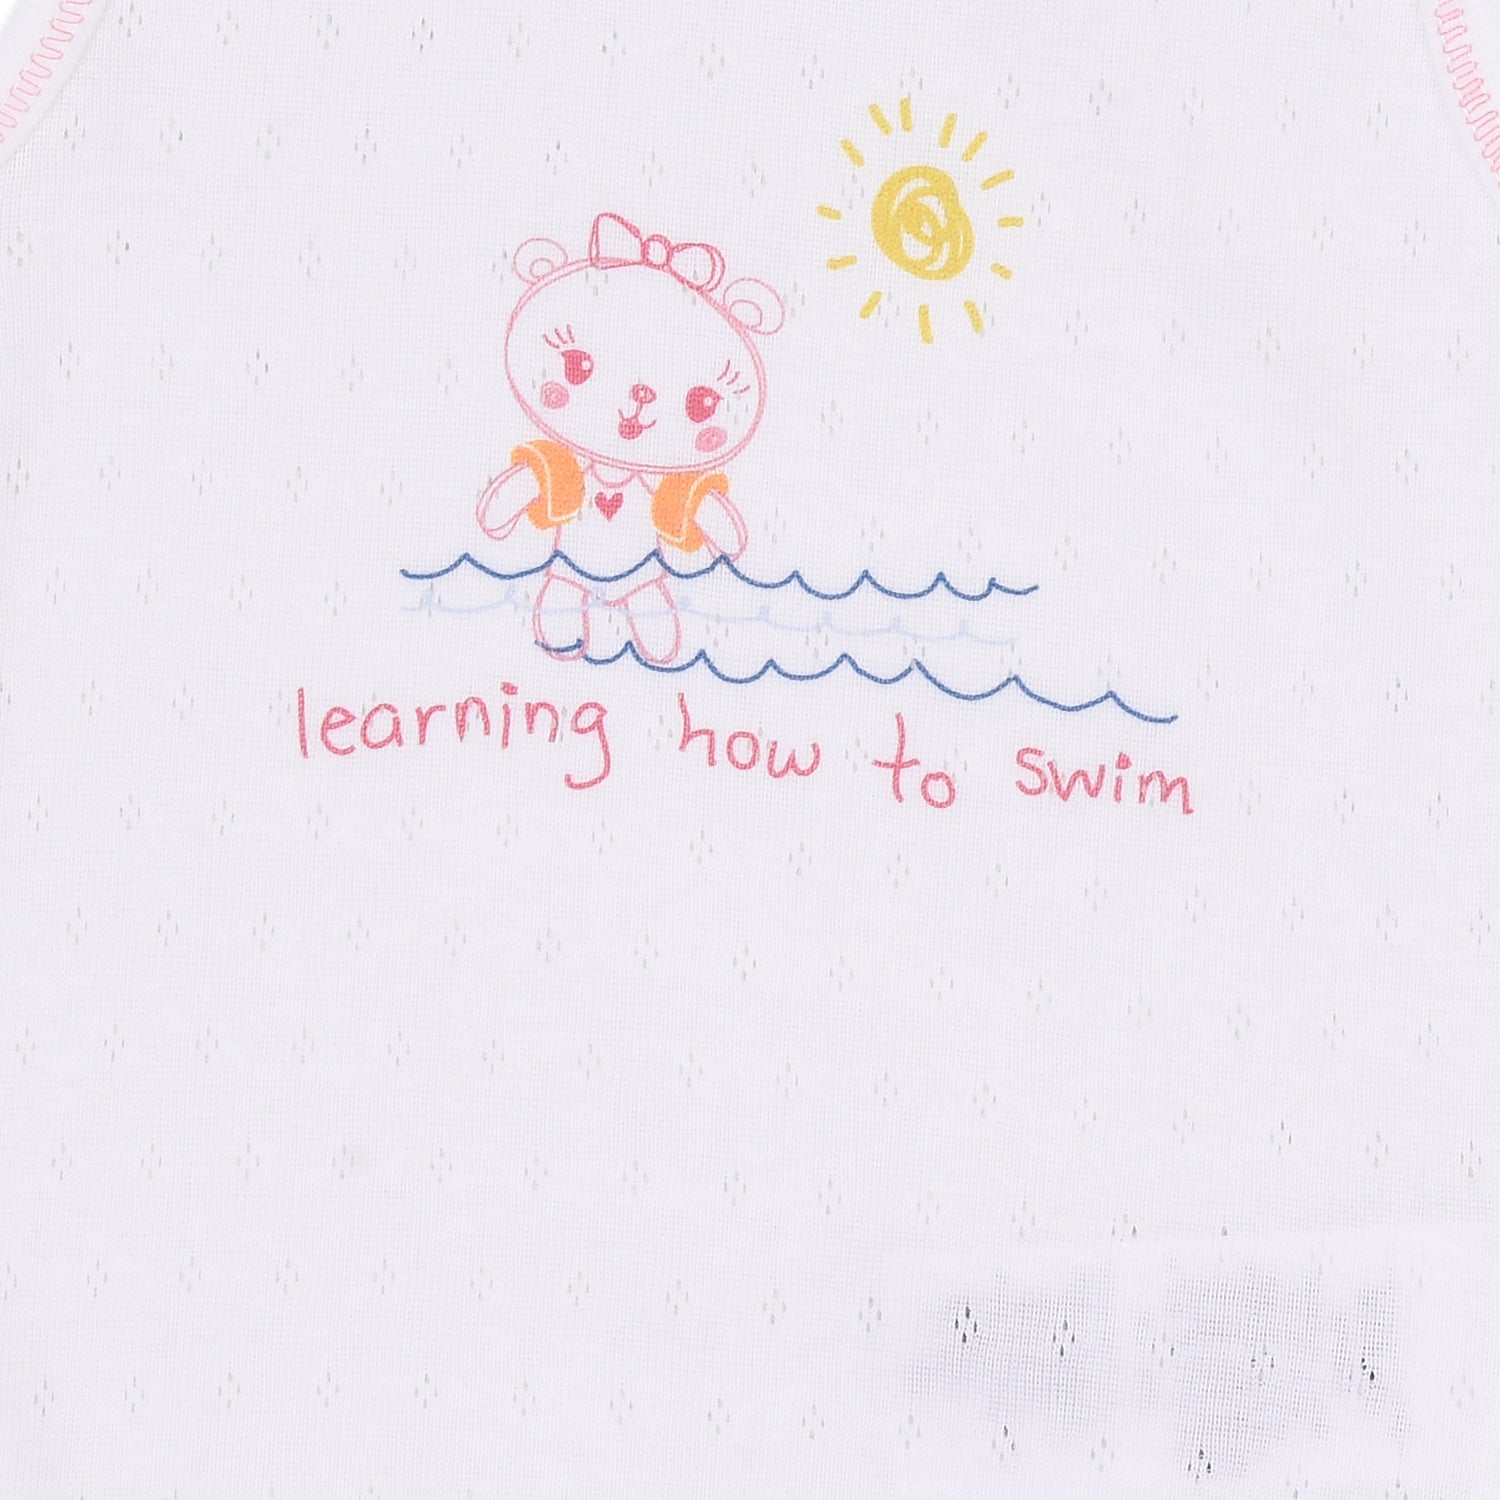 learning how to swim